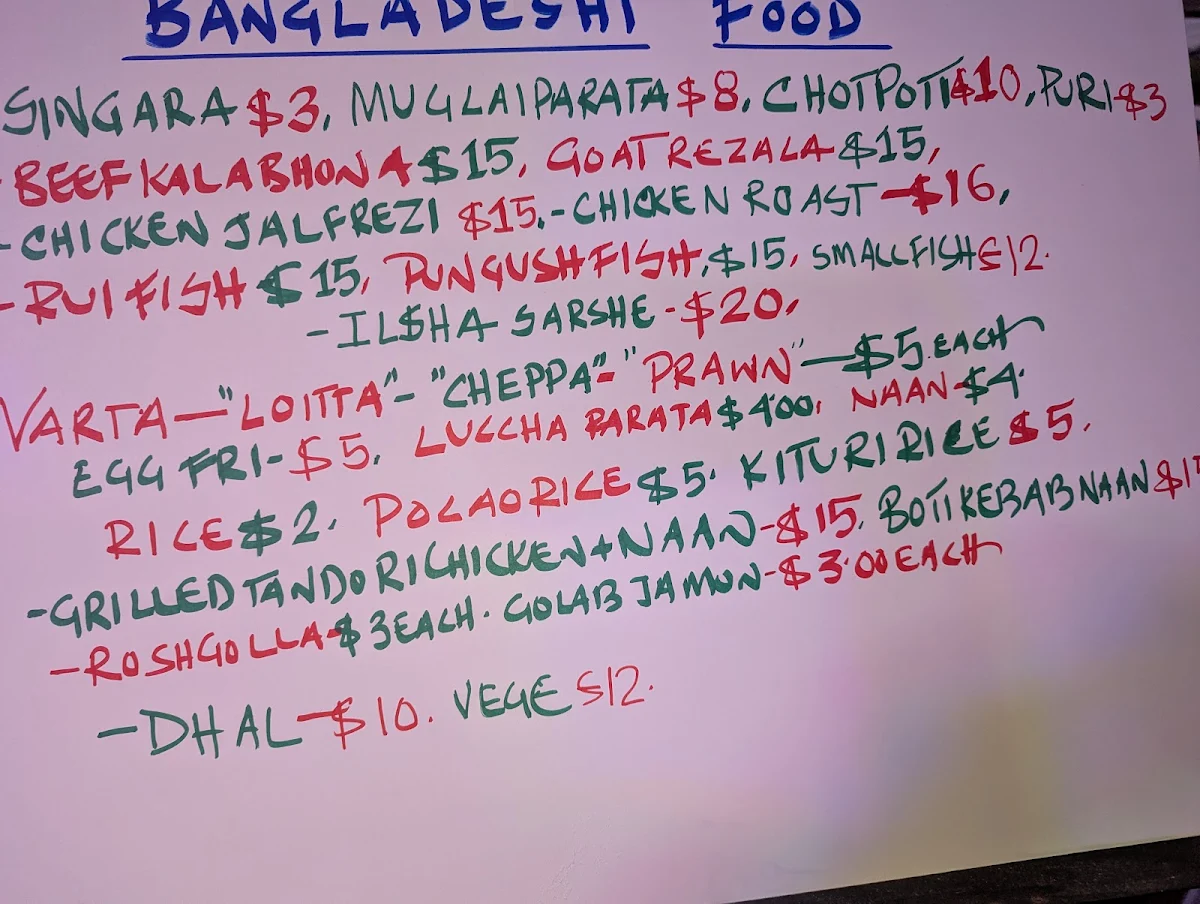 BANGLADESHI FOOD
SINGARA $3, MUGLAI PARATA $8, CHOTPOTI $10, PURI $3
- BEEF KALABHONA $15, GOAT REZALA $15,
- CHICKEN JALFREZI $15, - CHICKEN ROAST - $16,
- RUI FISH $15, PUNGUSH FISH, $15, SMALL FISH $12.
- ILSHA SARSHE - $20,
VARTA - "LOITTA" - "CHEPPA" - "PRAWN" - $5 EACH
EGG FRI - $5. LUCCHA PARATA $400, NAAN - $4.
RICE $2. POLAO RICE $5. KITURI RICE $5.
- GRILLED TANDORI CHICKEN + NAAN - $15. BOTI KEBAB NAAN
- ROSHGOLLA - $3 EACH. GOLAB JAMUN - $3.00 EACH
- DHAL - $10. VEGE $12.